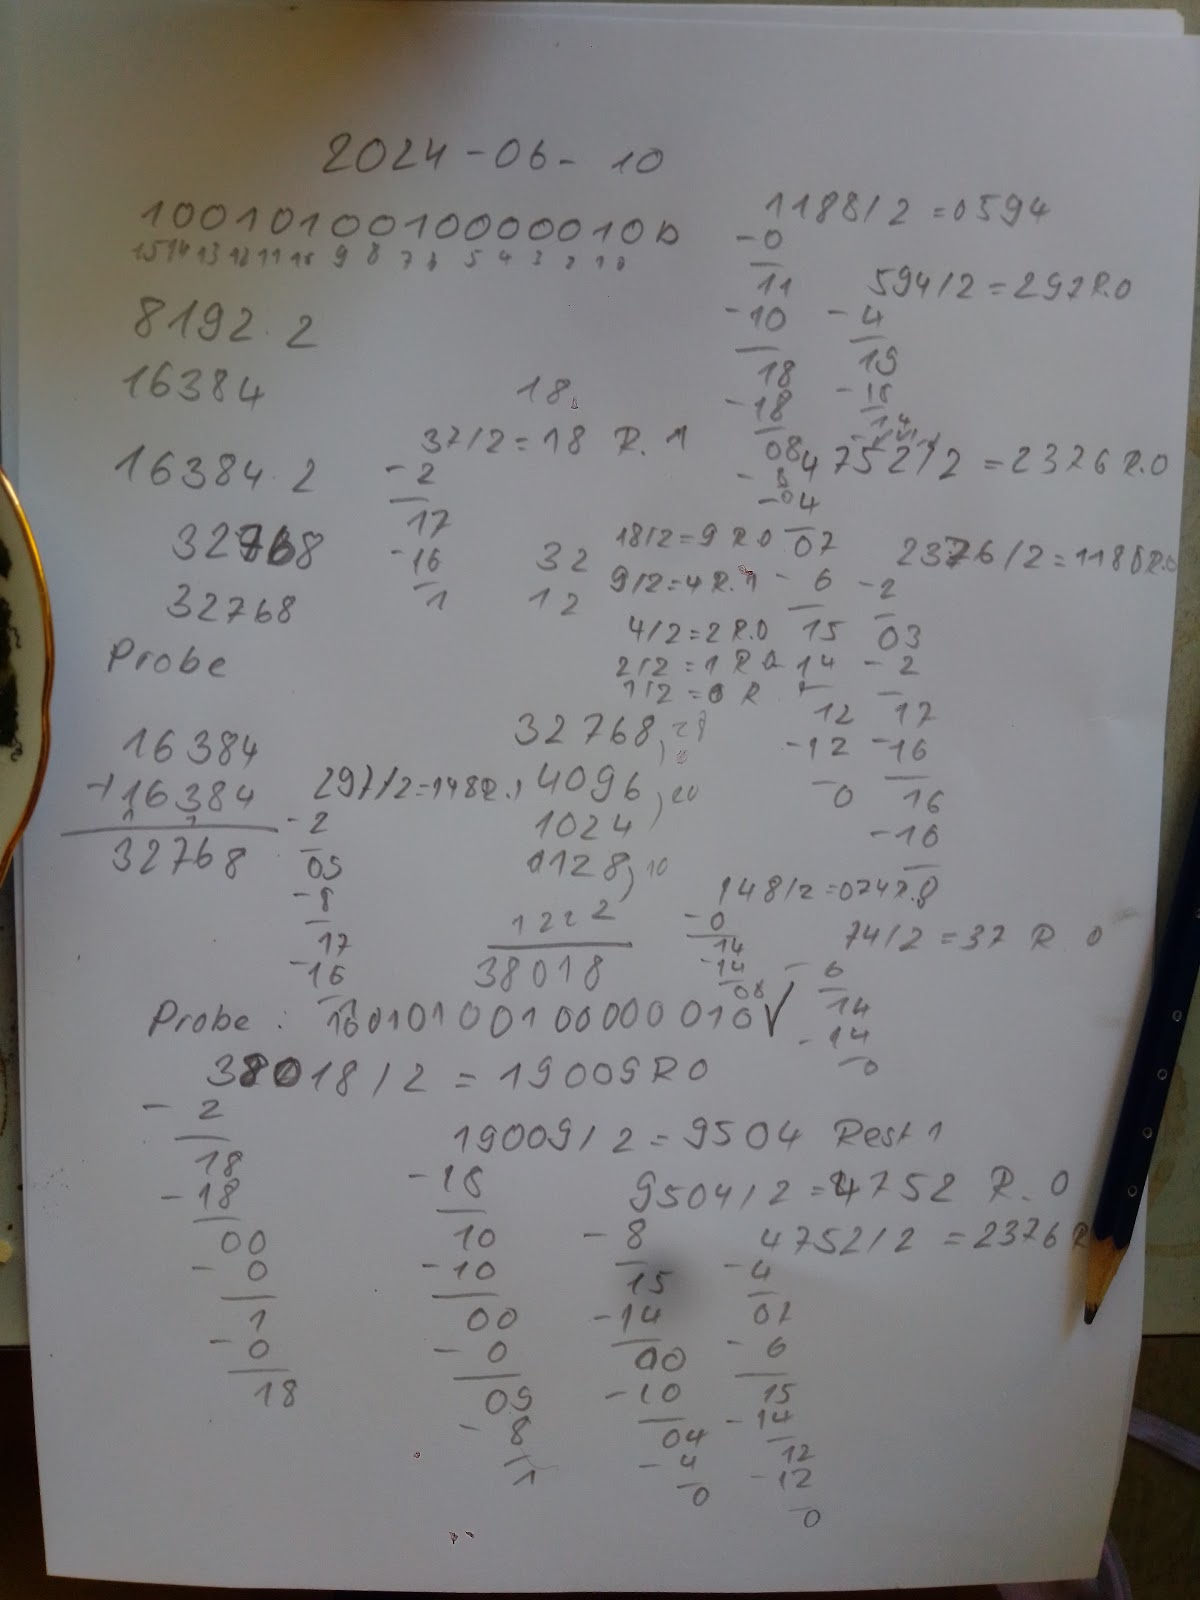 2024-06-10
1001010010000010b
15 14 13 12 11 10 9 8 7 6 5 4 3 2 1 0
8192.2
16384
16384.2
32768
32768
Probe
16384
+16384
1 1
32768
18
37/2=18 R.1
-2
17
-16
1
32
12
1188/2=0594
-0
11
-10
18
-18
08
-8
594/2=297R.0
-4
19
-18
14
4752/2=2376R.0
-4
07
-6
15
14
12
-12
0
18/2=9 R0
9/2=4R.1
4/2=2R.0
2/2=1R0
1/2=0R
2376/2=1188R.0
-2
03
-2
17
-16
16
-16
297/2=148R.1
-2
09
-8
17
-16
1
32768
4096, 20
1024
128, 10
1222
38018
148/2=074R.0
-0
14
-14
08
74/2=37 R 0
-6
14
-14
0
Probe: 1001010010000010✓
38018/2=19009R0
-2
18
-18
00
-0
1
-0
18
19009/2=9504 Rest 1
-18
10
-10
00
-0
09
-8
1
9504/2=4752 R.0
-8
15
-14
10
-10
04
-4
0
4752/2=2376R
-4
07
-6
15
-14
12
-12
0